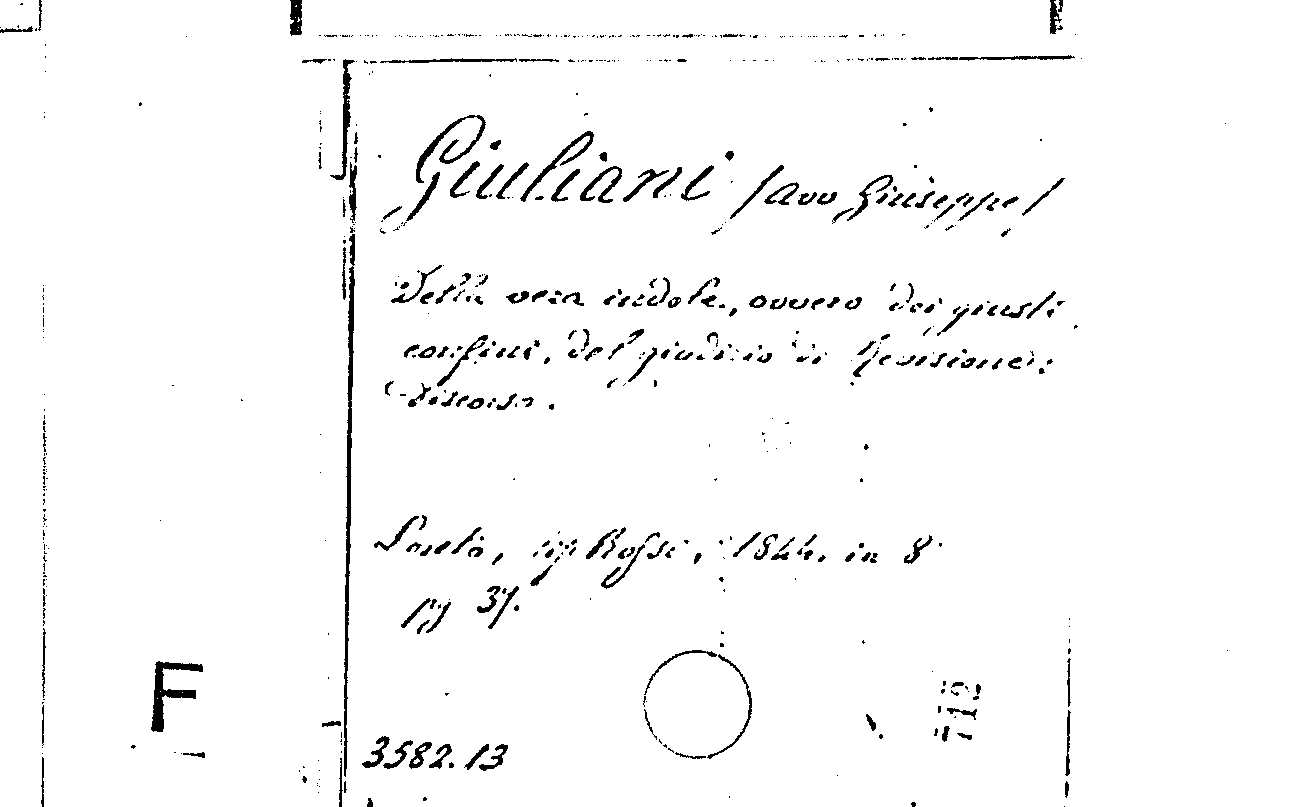 Giuliani /avv Giuseppe/
Della vera indole, ovvero dei giusti
confini, del giudizio di Revisione:
Discorso.
Loreto, tip Rossi, 1844. in 8°
pg 37.
F
112
3582.13